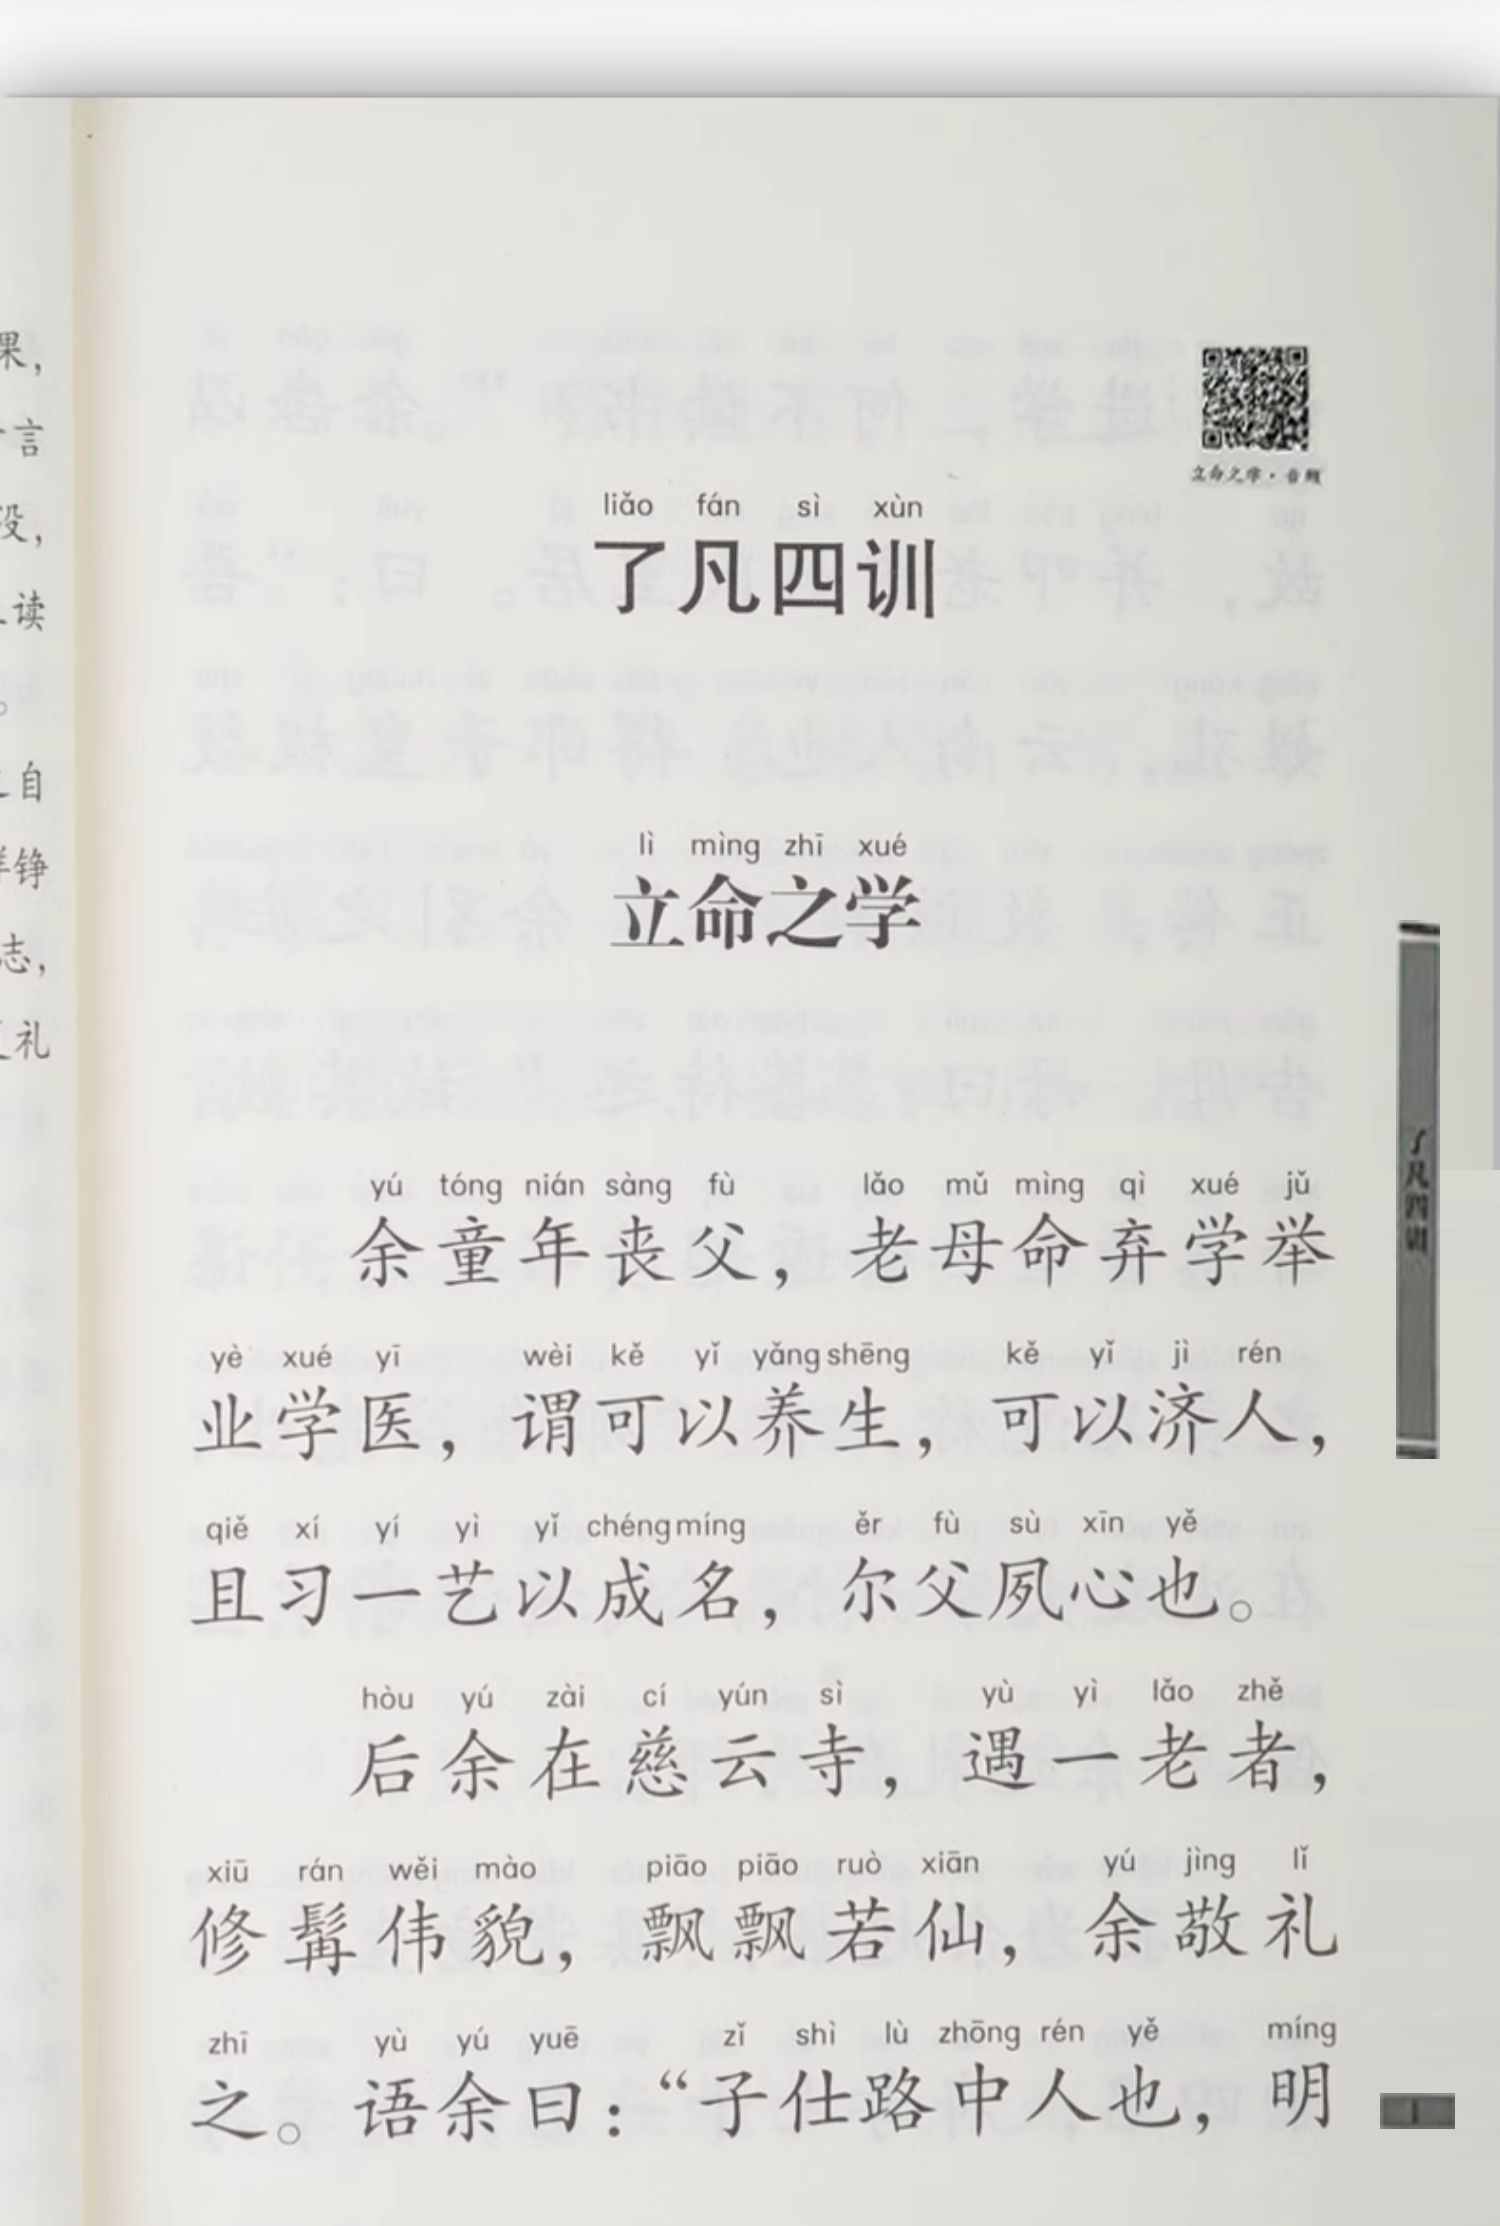 果，
言
没，
读
。
自
铮
志，
礼
立命之学·音频
liǎo fán sì xùn
了凡四训
lì mìng zhī xué
立命之学
yú tóng nián sàng fù lǎo mǔ mìng qì xué jǔ
余童年丧父，老母命弃学举
yè xué yī wèi kě yǐ yǎng shēng kě yǐ jì rén
业学医，谓可以养生，可以济人，
qiě xí yí yì yǐ chéng míng ěr fù sù xīn yě
且习一艺以成名，尔父夙心也。
hòu yú zài cí yún sì yù yì lǎo zhě
后余在慈云寺，遇一老者，
xiū rán wěi mào piāo piāo ruò xiān yú jìng lǐ
修髯伟貌，飘飘若仙，余敬礼
zhī yù yú yuē zǐ shì lù zhōng rén yě míng
之。语余曰：“子仕路中人也，明
了凡四训
1